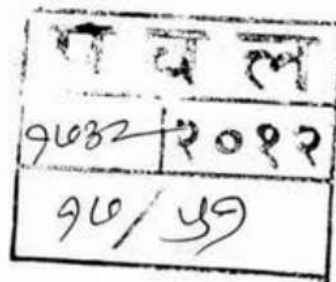 प व ल
१७३२ २०१२
१७/५१